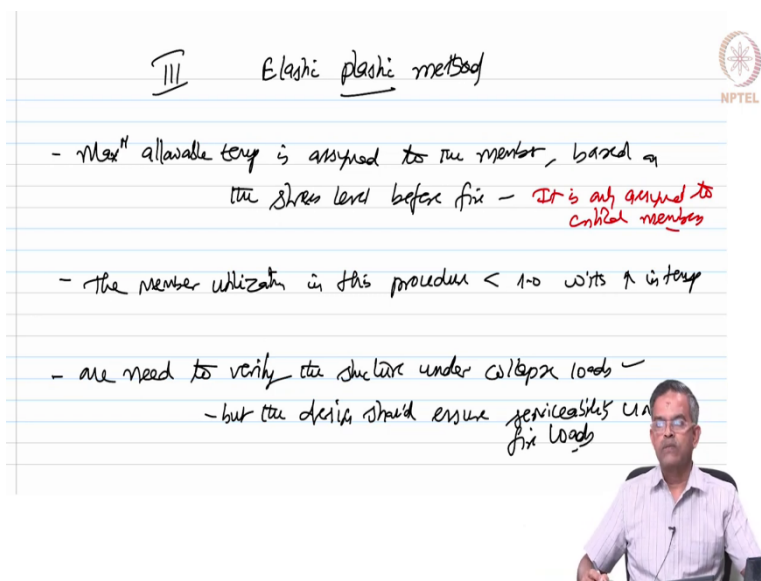 III Elastic plastic method
NPTEL
- Maxm allowable temp is assigned to the member, based on
the stress level before fire - It is only assigned to
critical members
- The member utilization in this procedure < 1.0 with ↑ in temp
- one need to verify the structure under collapse loads -
- but the design should ensure serviceability un
fire loads